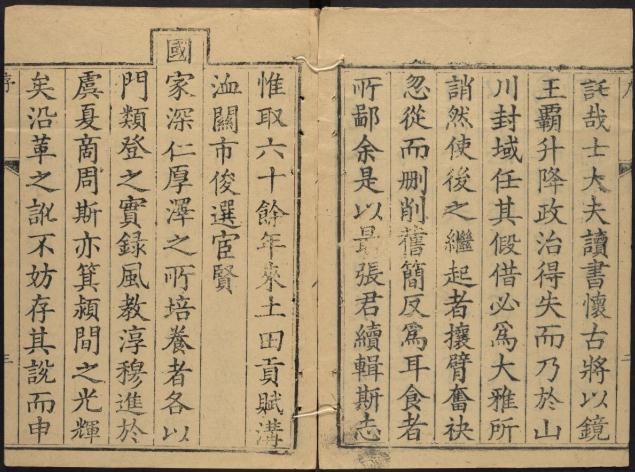 託哉士大夫讀書懷古將以鏡
王霸升降政治得失而乃於山
川封域任其假借必為大雅所
誚然使後之繼起者攘臂奮袂
忽從而刪削舊簡反為耳食者
所鄙余是以最張君續輯斯志
惟取六十餘年來土田貢賦溝
洫關市俊選宦賢
國
家深仁厚澤之所培養者各以
門類登之實錄風教淳穆進於
虞夏商周斯亦箕潁間之光輝
矣沿革之訛不妨存其說而申
序
三